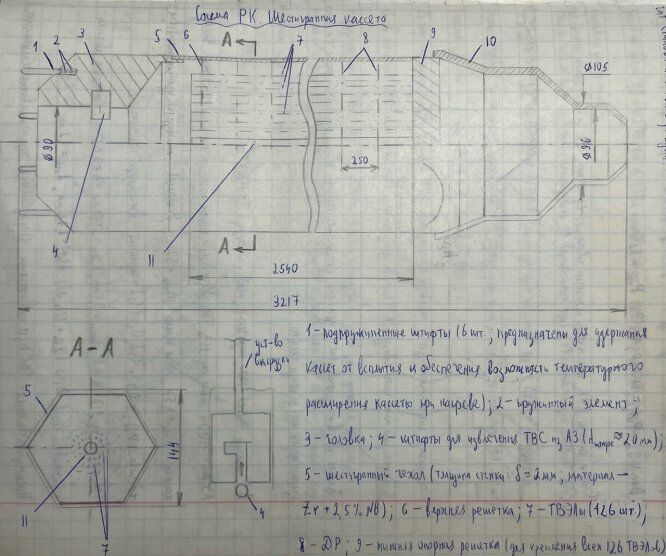 Схема РК. Шестигранная кассета
1 2 3 5 6 А 7 8 9 10
Ø90
Ø105
Ø96
250
4
11
А
2540
3217
А-А
5
144
11
7
уст-во
выгрузки
4
1 - подпружиненные штифты (6 шт.; предназначены для удержания
кассет от всплытия и обеспечения возможности температурного
расширения кассеты при нагреве); 2 - пружинный элемент;
3 - головка; 4 - штифты для извлечения ТВС из АЗ (d ≈ 20 мм);
5 - шестигранный чехол (толщина стенки: δ = 2 мм, материал -
Zr + 2,5% Nb); 6 - верхняя решетка; 7 - ТВЭЛы (126 шт.);
8 - ДР; 9 - нижняя опорная решетка (для крепления всех 126 ТВЭЛов)